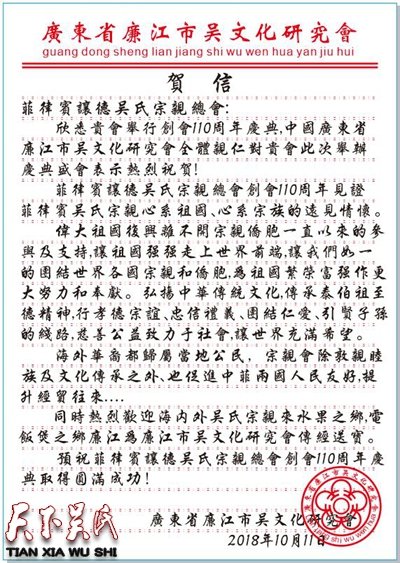 廣東省廉江市吴文化研究會
guang dong sheng lian jiang shi wu wen hua yan jiu hui
賀信
菲律賓讓德吴氏宗親總會:
欣悉貴會舉行創會110周年慶典,中國廣東省
廉江市吴文化研究會全體親仁對貴會此次舉辦
慶典盛會表示熱烈祝賀!
菲律賓讓德吴氏宗親總會創會110周年見證
菲律賓吴氏宗親心系祖國、心系宗族的遠見情懷。
偉大祖國復興離不開宗親僑胞一直以來的參
與及支持,讓祖國强强走上世界前端,讓我們如一
的團結世界各國宗親和僑胞,爲祖國繁榮富强作更
大努力和奉獻。弘揚中華傳統文化,傳承泰伯祖至
德精神,行孝德宗誼、忠信禮義、團結仁愛、引賢子孫
的綫路,慈善公益致力于社會,讓世界充滿希望。
海外華裔都歸屬當地公民,宗親會除敦親睦
族及文化傳承之外、也促進中菲兩國人民友好,提
升經貿往來....
同時熱烈歡迎海内外吴氏宗親來水果之鄉,電
飯煲之鄉廉江爲廉江市吴文化研究會傳經送寶。
預祝菲律賓讓德吴氏宗親總會創會110周年慶
典取得圓滿成功!
廣東省廉江市吴文化研究會
2018年10月11日
天下吴氏
TIAN XIA WU SHI